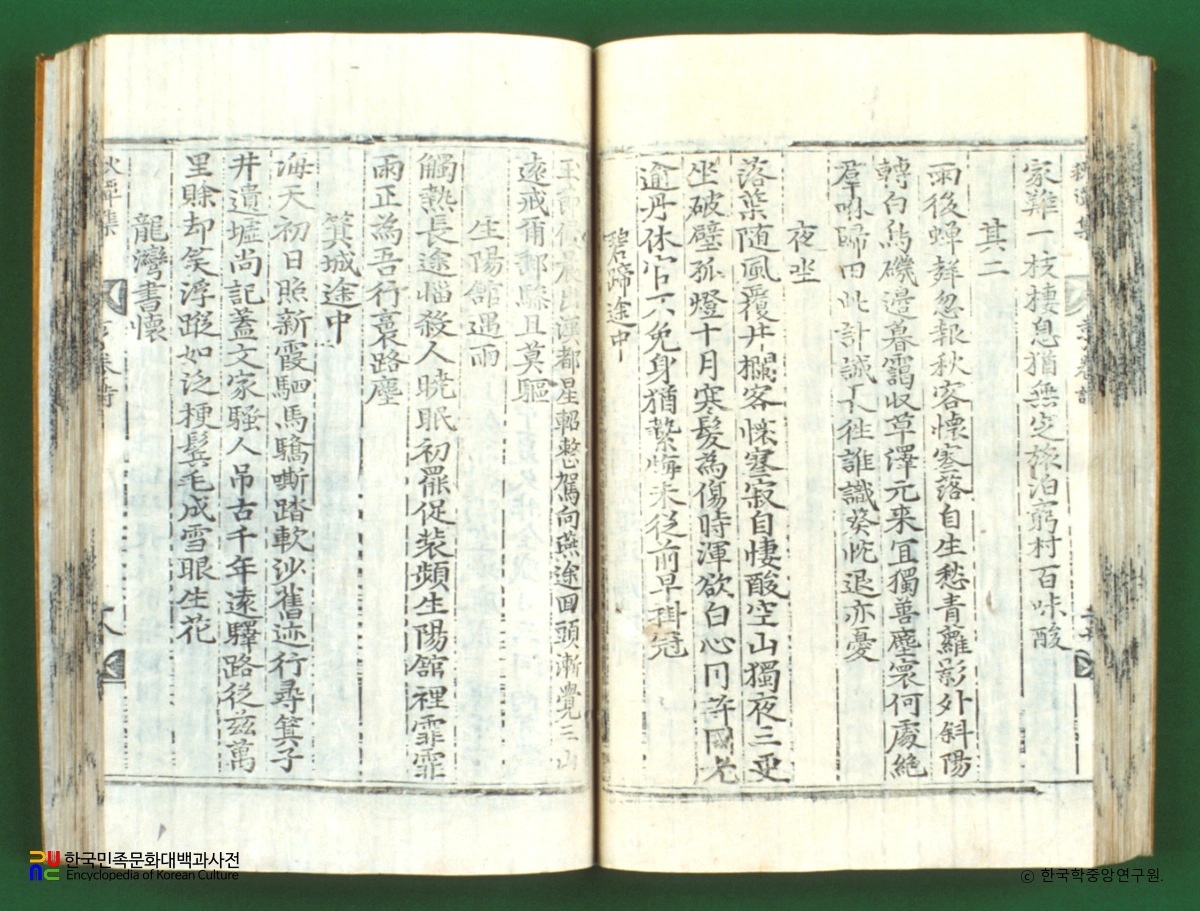 家難一枝棲息猶無定旅泊窮村百味酸
其二
雨後蟬聲忽報秋客懷寒落自生愁青蘿影外斜陽
轉白鳥磯邊暮靄收草澤元來宜獨善塵寰何處絶
羣咻歸田此計誠人徃誰識發忱退亦憂
夜坐
落葉随風覆井欄客懷寒寂自悽酸空山獨夜三更
坐破壁孤燈十月寒髮為傷時渾欲白心同許國
逾丹休官不免身猶縶悔未從前早掛冠
碧蹄途中
玉節晨出漢都星軺整駕向燕途回頭漸覺三山
遠戒甭郵驂且莫驅
生陽舘遇雨
觸熱長途惱殺人曉眠初罷促装頻生陽舘裡霏霏
雨正為吾行裛路塵
箕城途中
海天初日照新霞駟馬驕嘶踏軟沙舊迹行尋箕子
井遺墟尚記蓋文家騷人吊古千年遠驛路從玆萬
里賖却笑浮蹤如泛梗鬂毛成雪眼生花
龍灣書懷
秋潭集
卷詩
한국민족문화대백과사전
Encyclopedia of Korean Culture
ⓒ 한국학중앙연구원.